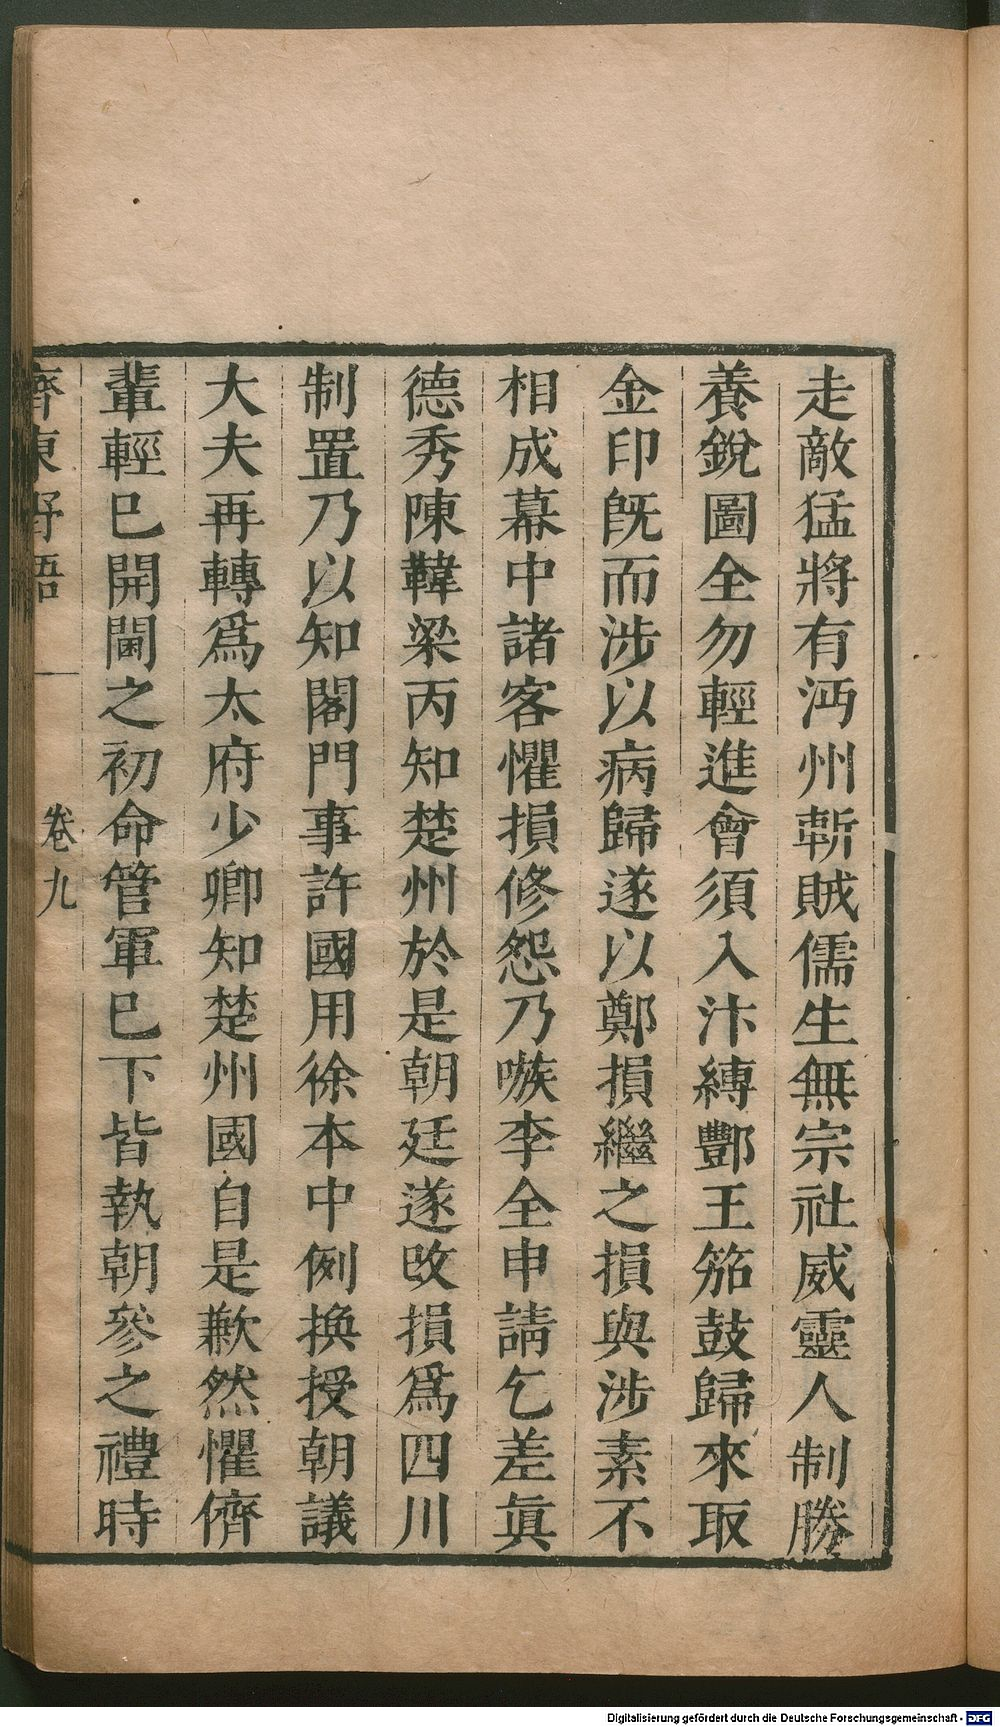 走敵猛將有沔州斬賊儒生無宗社威靈人制勝
養銳圖全勿輕進會須入汴縛酆王笳鼓歸來取
金印旣而涉以病歸遂以鄭損繼之損與涉素不
相成幕中諸客懼損修怨乃嗾李全申請乞差眞
德秀陳韡梁丙知楚州於是朝廷遂改損爲四川
制置乃以知閤門事許國用徐本中例換授朝議
大夫再轉爲太府少卿知楚州國自是歉然懼儕
輩輕巳開閫之初命管軍巳下皆執朝參之禮時
齊東野語 卷九
Digitalisierung gefördert durch die Deutsche Forschungsgemeinschaft - DFG